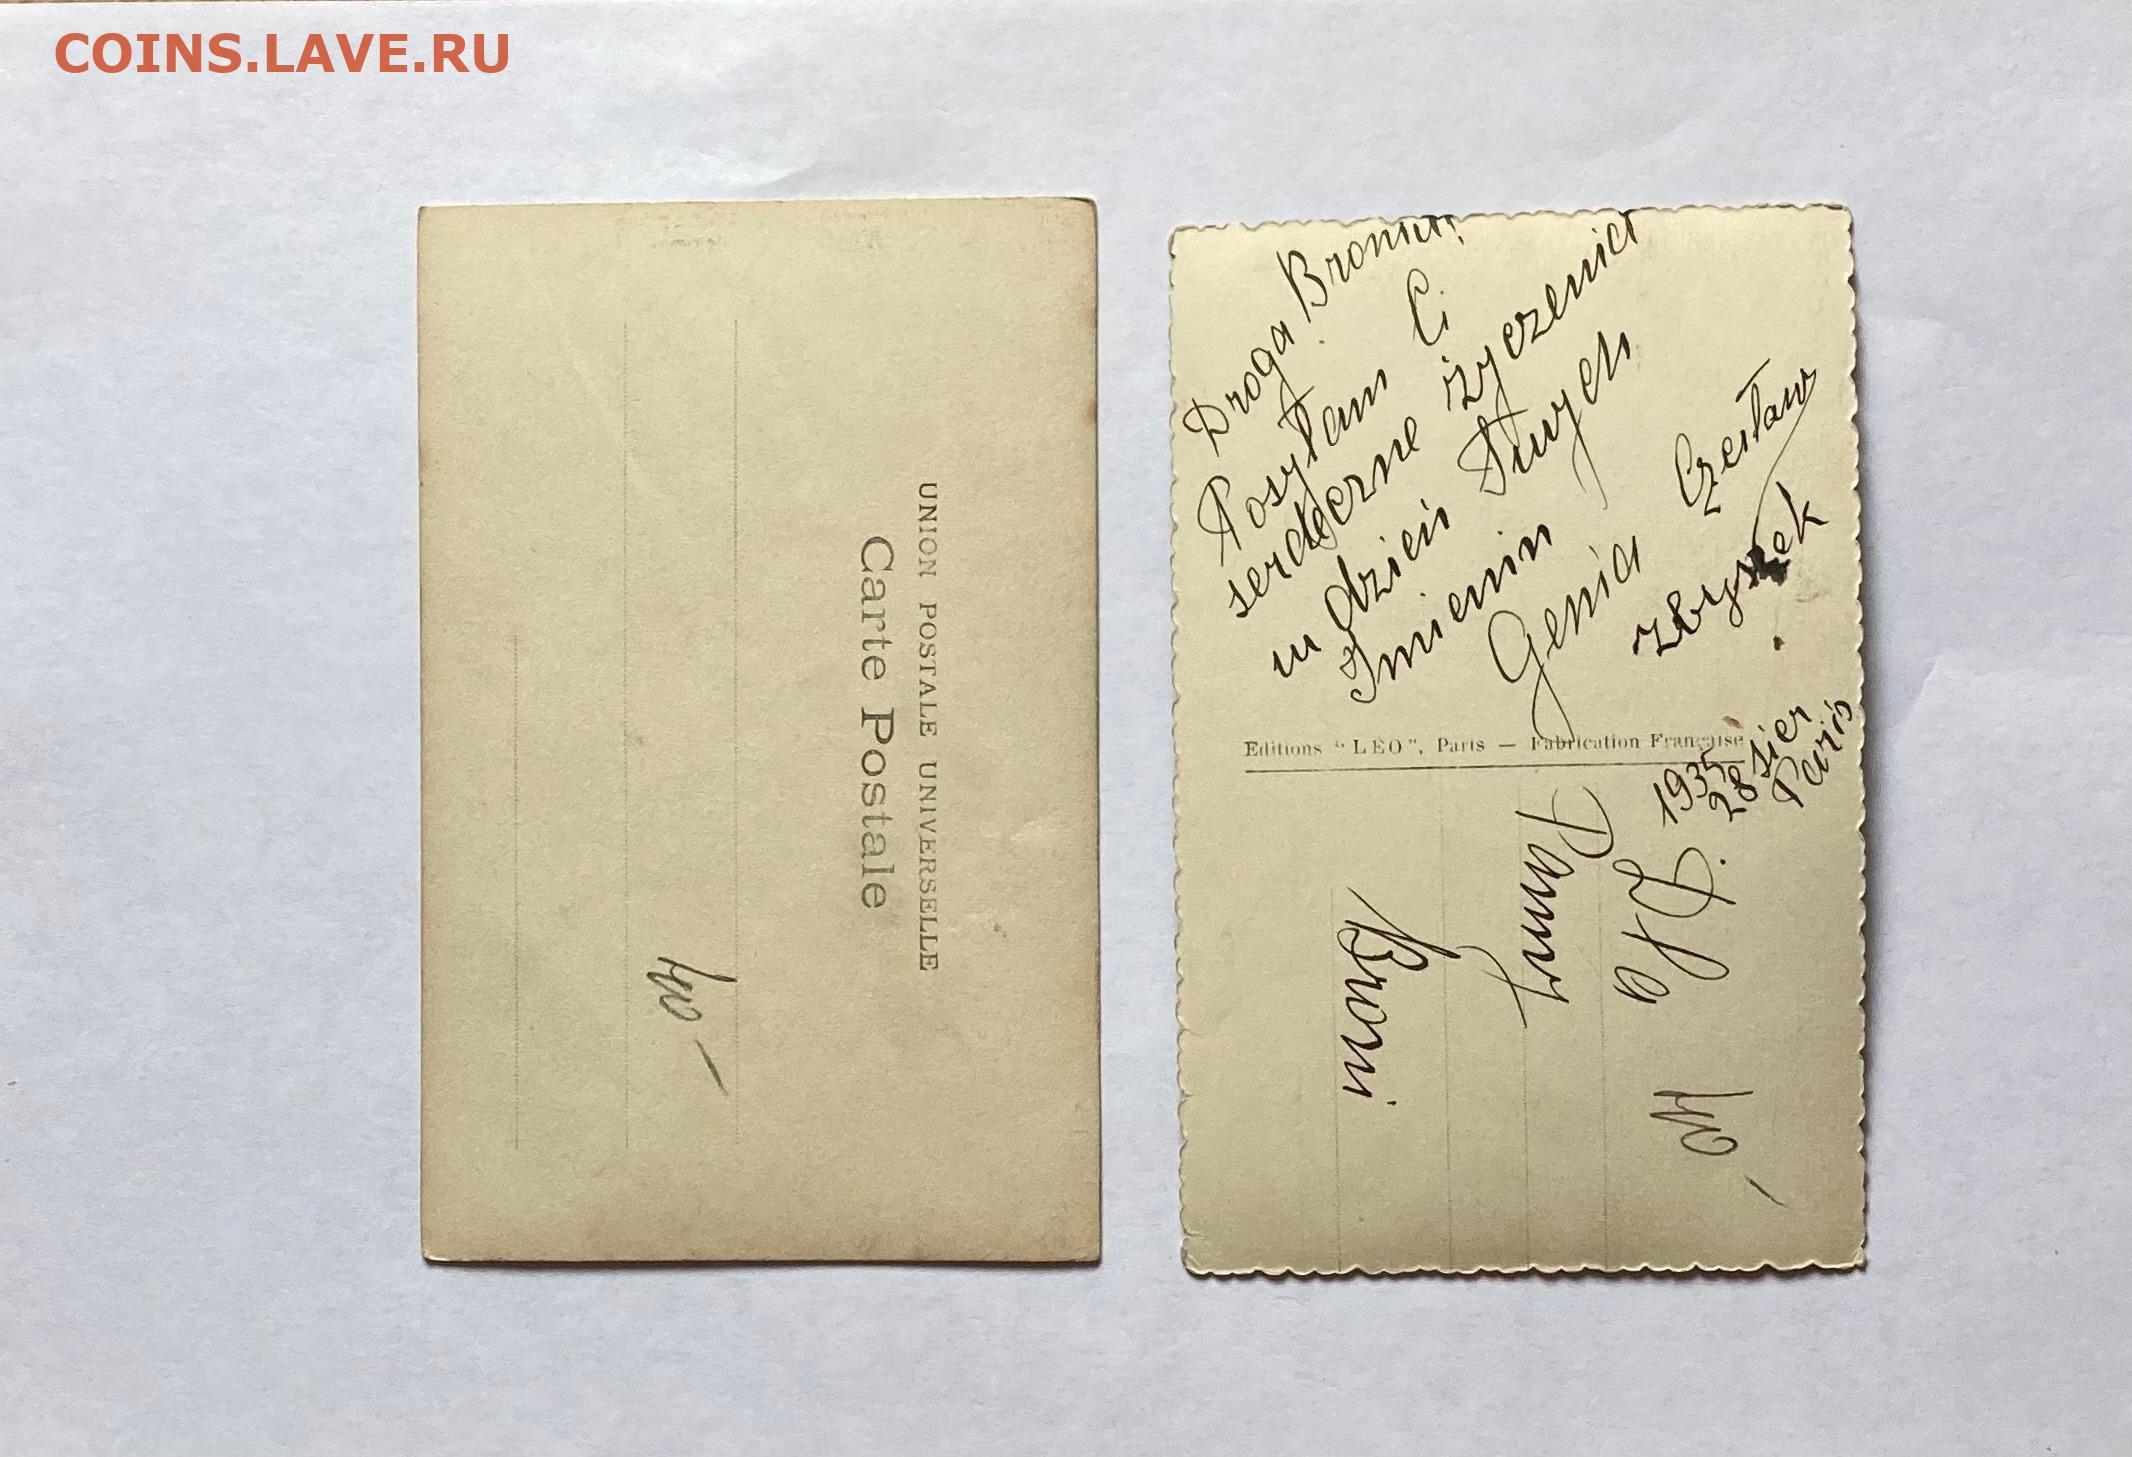 COINS.LAVE.RU
UNION POSTALE UNIVERSELLE
Carte Postale
400 –
Droga Broniu!
Posyłam Ci
serdeczne życzenia
w dzień Twych
Imienin
Genia Czesław
Zbyszek
Editions "LÉO", Paris — Fabrication Française
1935
28 sier
Paris
Dla
Panny
Broni